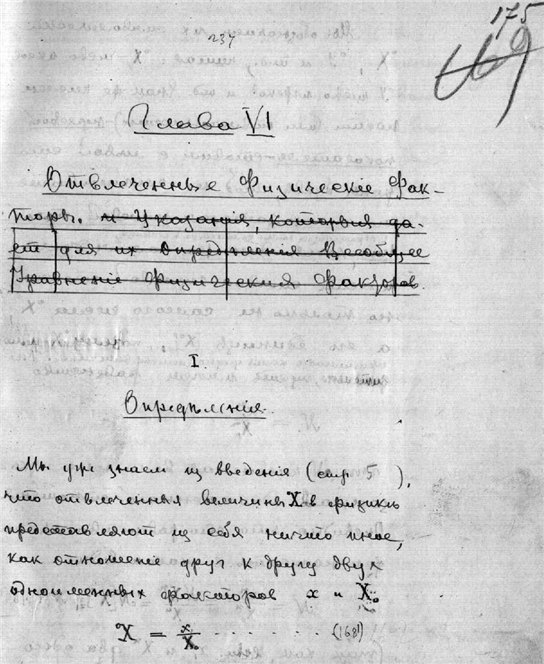 175
237
69
Глава VI
Отвлеченные Физическіе Фак-
торы. и Указанія, которыя да-
ет для их Определенія Всеобщее
Уравненіе Физических Факторов.
I.
Определенія.
Мы уже знаем из введенія (стр 5),
что отвлеченныя величины X в физике
представляют из себя ничто иное,
как отношеніе друг к другу двух
одноименных факторов x и X₀
X = x/X₀ . . . . . . . . (168)